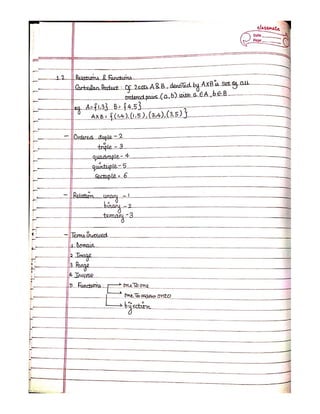 classmate
Date
Page
1.2 Relations & Functions
Cartesian Product Of 2 sets A & B, denoted by AXB is set of all
ordered pairs (a,b) with a ∈ A, b ∈ B.
eg A = {1,3} B = {4,5}
AXB = {(1,4), (1,5), (3,4), (3,5)}
- Ordered duple - 2
triple - 3
quadruple - 4
quintuple - 5
sextuple - 6
- Relation unary - 1
binary - 2
ternary - 3
- Terms Involved
1. Domain
2. Image
3. Range
4. Inverse
5. Functions → one to one
→ one to many onto
→ bijection